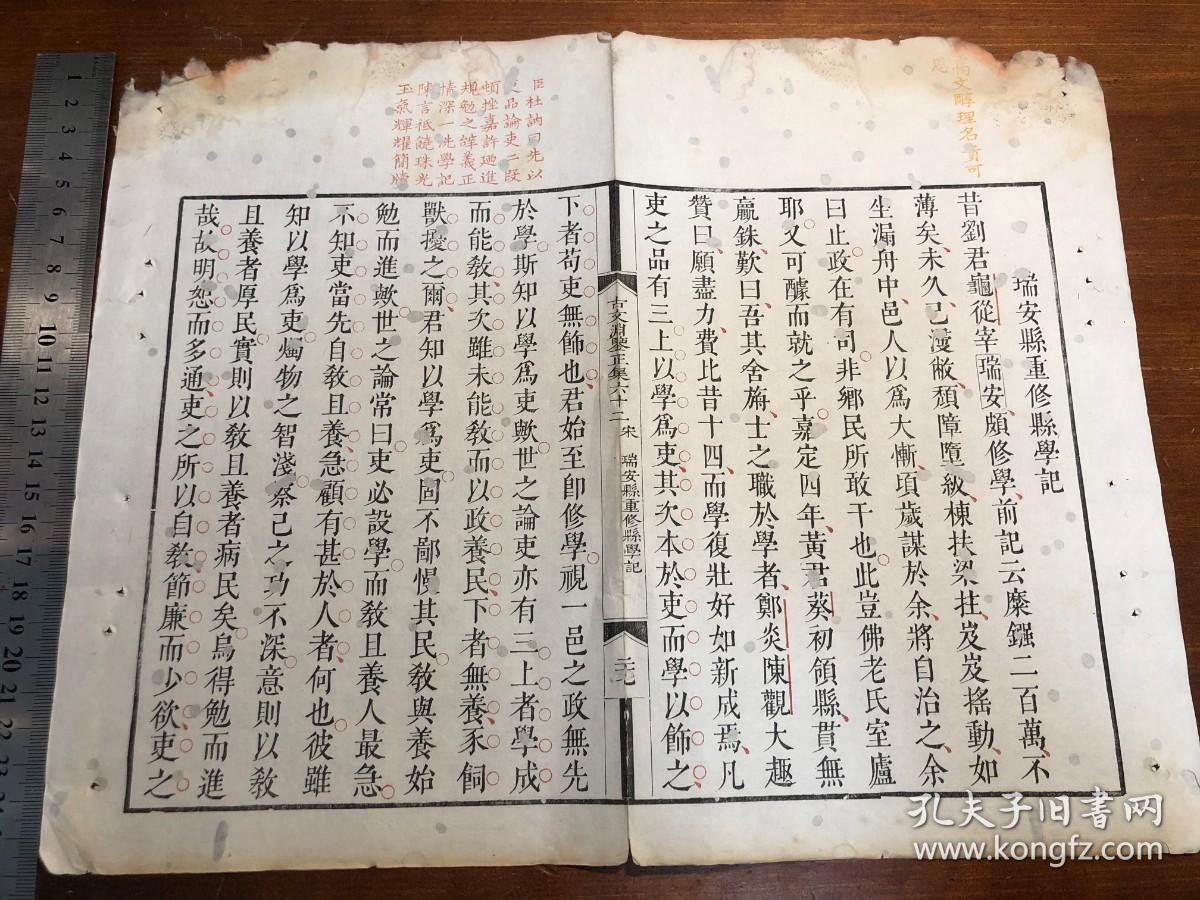 文醇理名貴可
瑞安縣重修縣學記
昔劉君龜從宰瑞安頗修學前記云縻鏹二百萬不
薄矣未久已漫敝頽障墮級棟扶梁拄岌岌搖動如
坐漏舟中邑人以爲大慚頃歲謀於余將自治之余
曰止政在有司非鄉民所敢干也此豈佛老氏室廬
耶又可醵而就之乎嘉定四年黃君葵初領縣貰無
贏銖歎曰吾其舍旃士之職於學者鄭炎陳觀大趣
贊曰願盡力費比昔十四而學復壯好如新成焉凡
吏之品有三上以學爲吏其次本於吏而學以飾之
古文淵鑒正集六十二 宋 瑞安縣重修縣學記
臣杜訥曰先以
品論吏二段
頓挫嘉許迺進
規勉之辭義正
情深一洗學記
陳言祗饒珠光
玉氣輝耀簡牘
下者苟吏無飾也君始至卽修學視一邑之政無先
於學斯知以學爲吏歟世之論吏亦有三上者學成
而能教其次雖未能教而以政養民下者無養豕飼
獸擾之爾君知以學爲吏固不鄙慢其民教與養始
勉而進歟世之論常曰吏必設學而教且養人最急
不知吏當先自教且養急顧有甚於人者何也彼雖
知以學爲吏燭物之智淺察己之功不深意則以教
且養者厚民實則以教且養者病民矣烏得勉而進
哉故明恕而多通吏之所以自教節廉而少欲吏之
孔夫子旧书网
www.kongfz.com
1
2
3
4
5
6
7
8
9
10
11
12
13
14
15
16
17
18
19
20
21
22
23